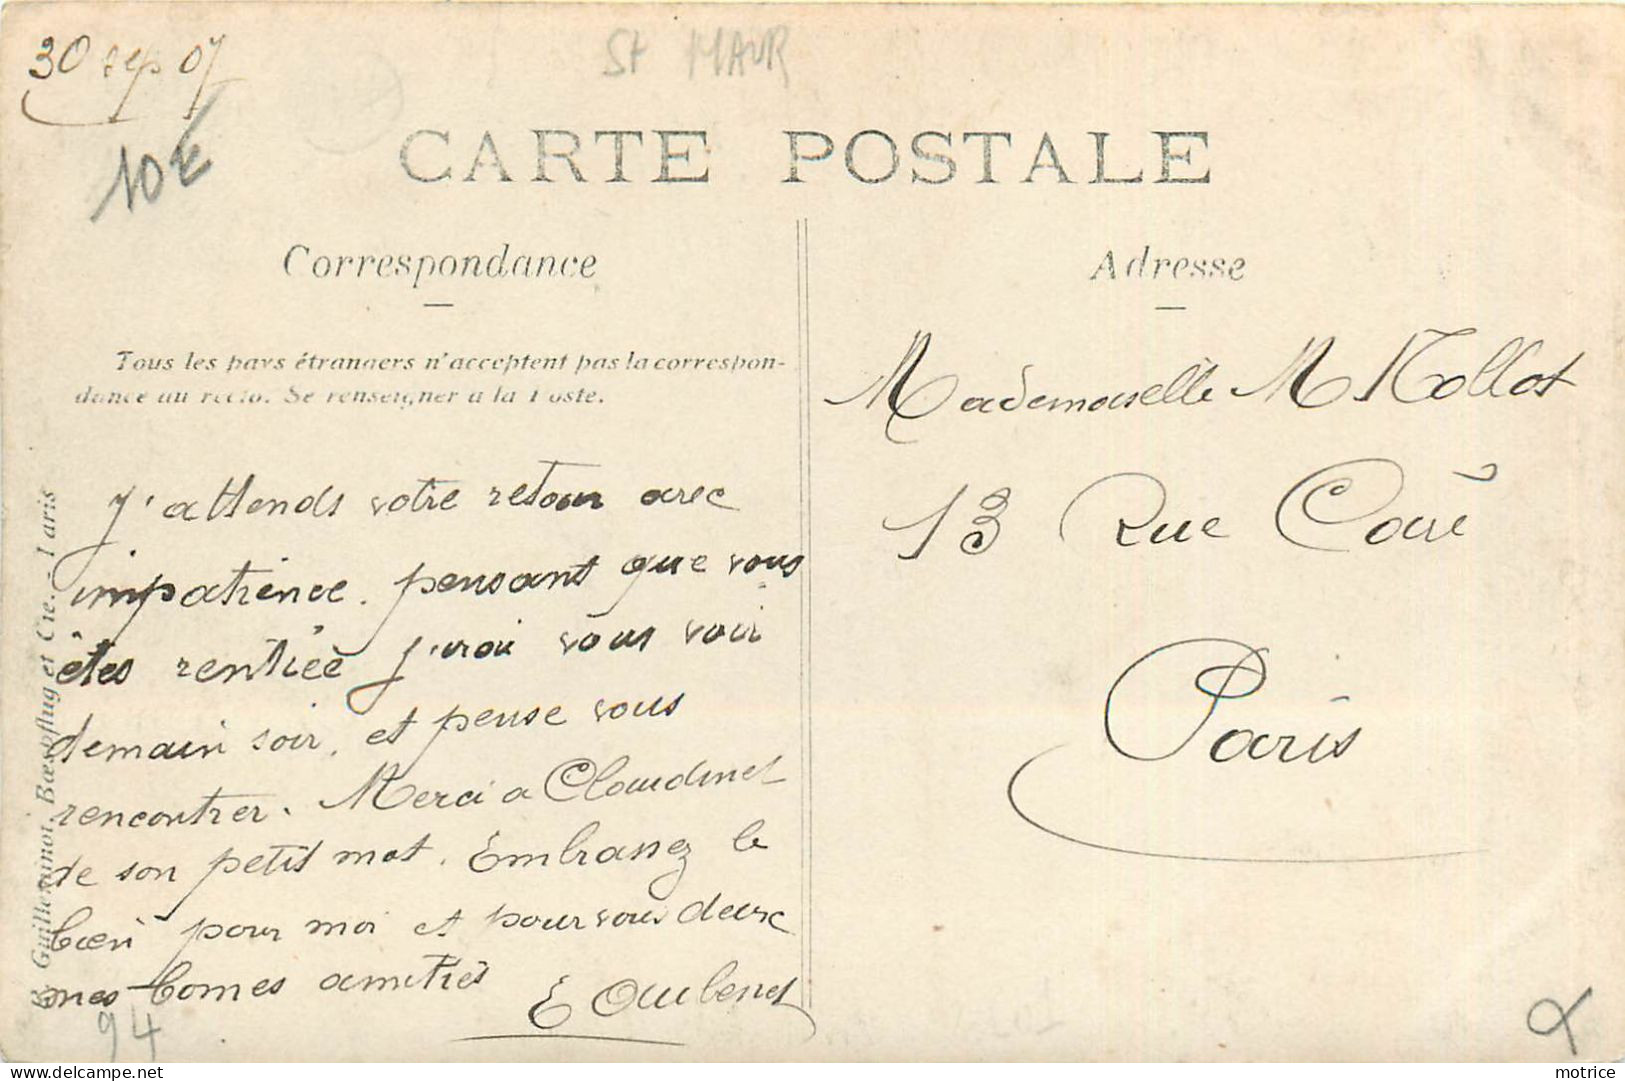 30 sep 07
St MAUR
10€
CARTE POSTALE
Correspondance
Adresse
Tous les pays étrangers n'acceptent pas la correspon-
dance au recto. Se renseigner a la Poste.
J'attends votre retour avec
impatience. pensant que vous
êtes rentrée j'irai vous voir
demain soir, et pense vous
rencontrer. Merci a Claudinet
de son petit mot. Embrassez le
bien pour moi et pour vous deux
mes bonnes amitiés
E Aubenet
Mademoiselle M Nollot
13 Rue
Paris
R. Guilleminot, Bœspflug et Cie. - Paris
94
motrice